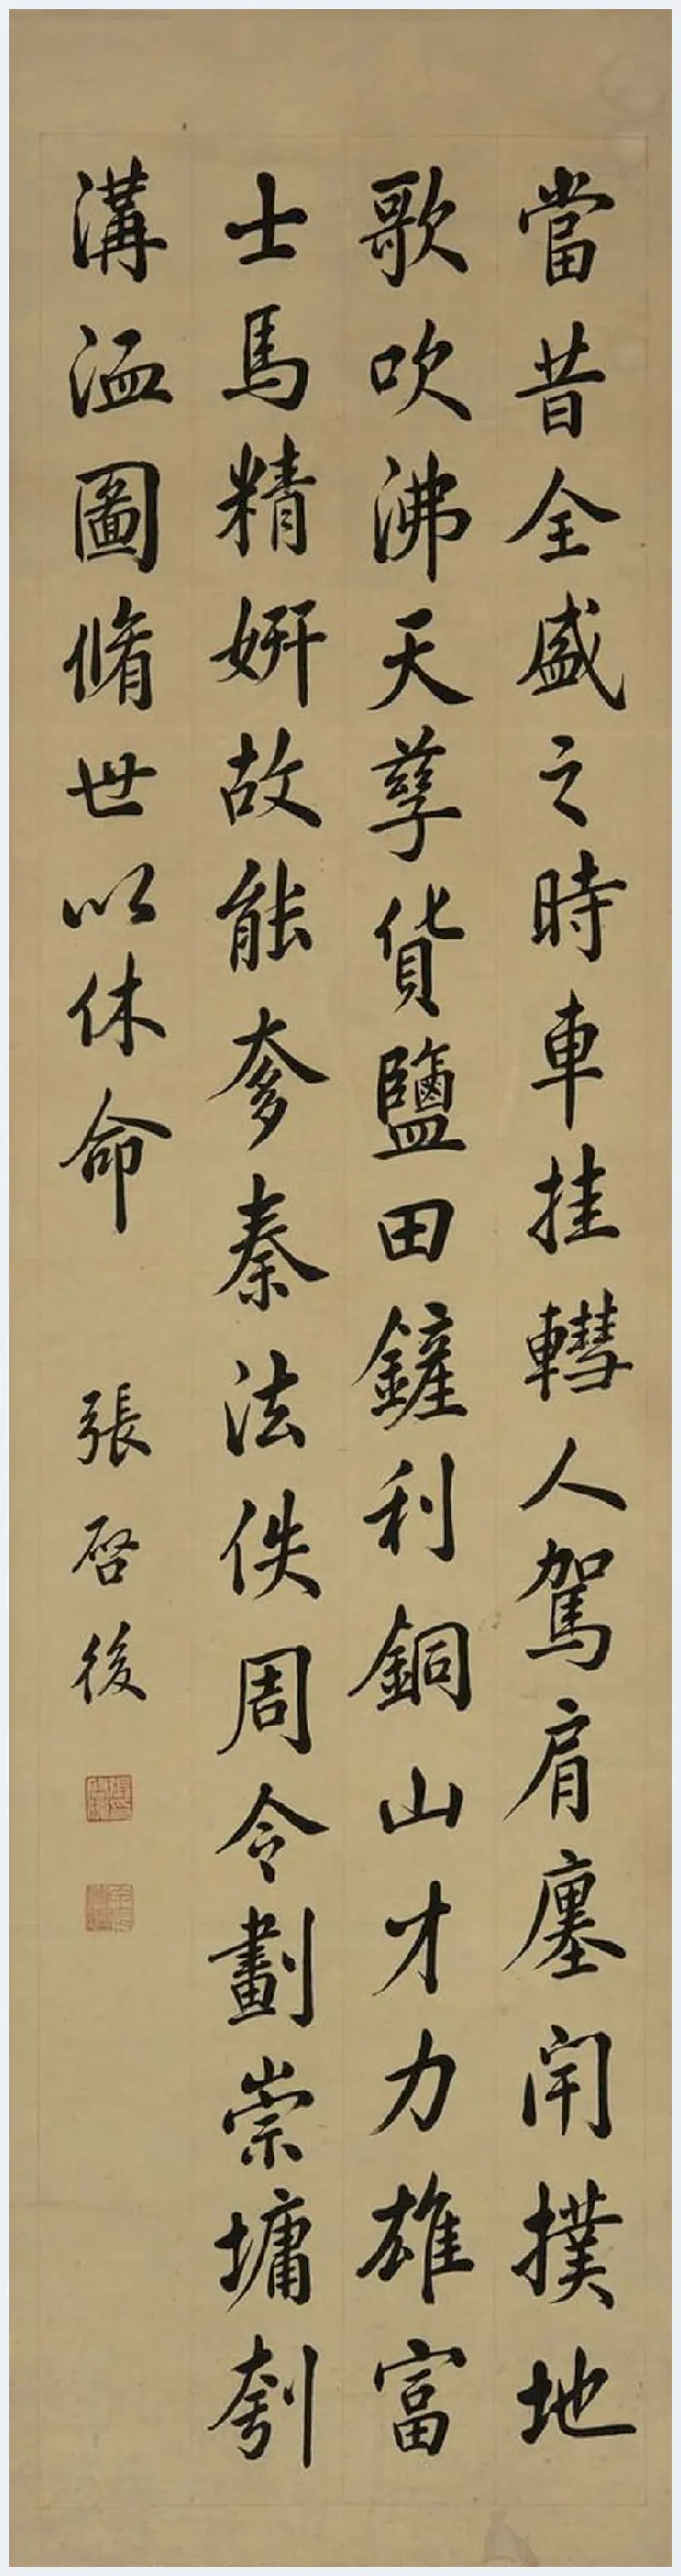 當昔全盛之時車挂轊人駕肩廛閈撲地
歌吹沸天孳貨鹽田鏟利銅山才力雄富
士馬精妍故能奓秦法佚周令劃崇墉刳
溝洫圖脩世以休命
張啓後